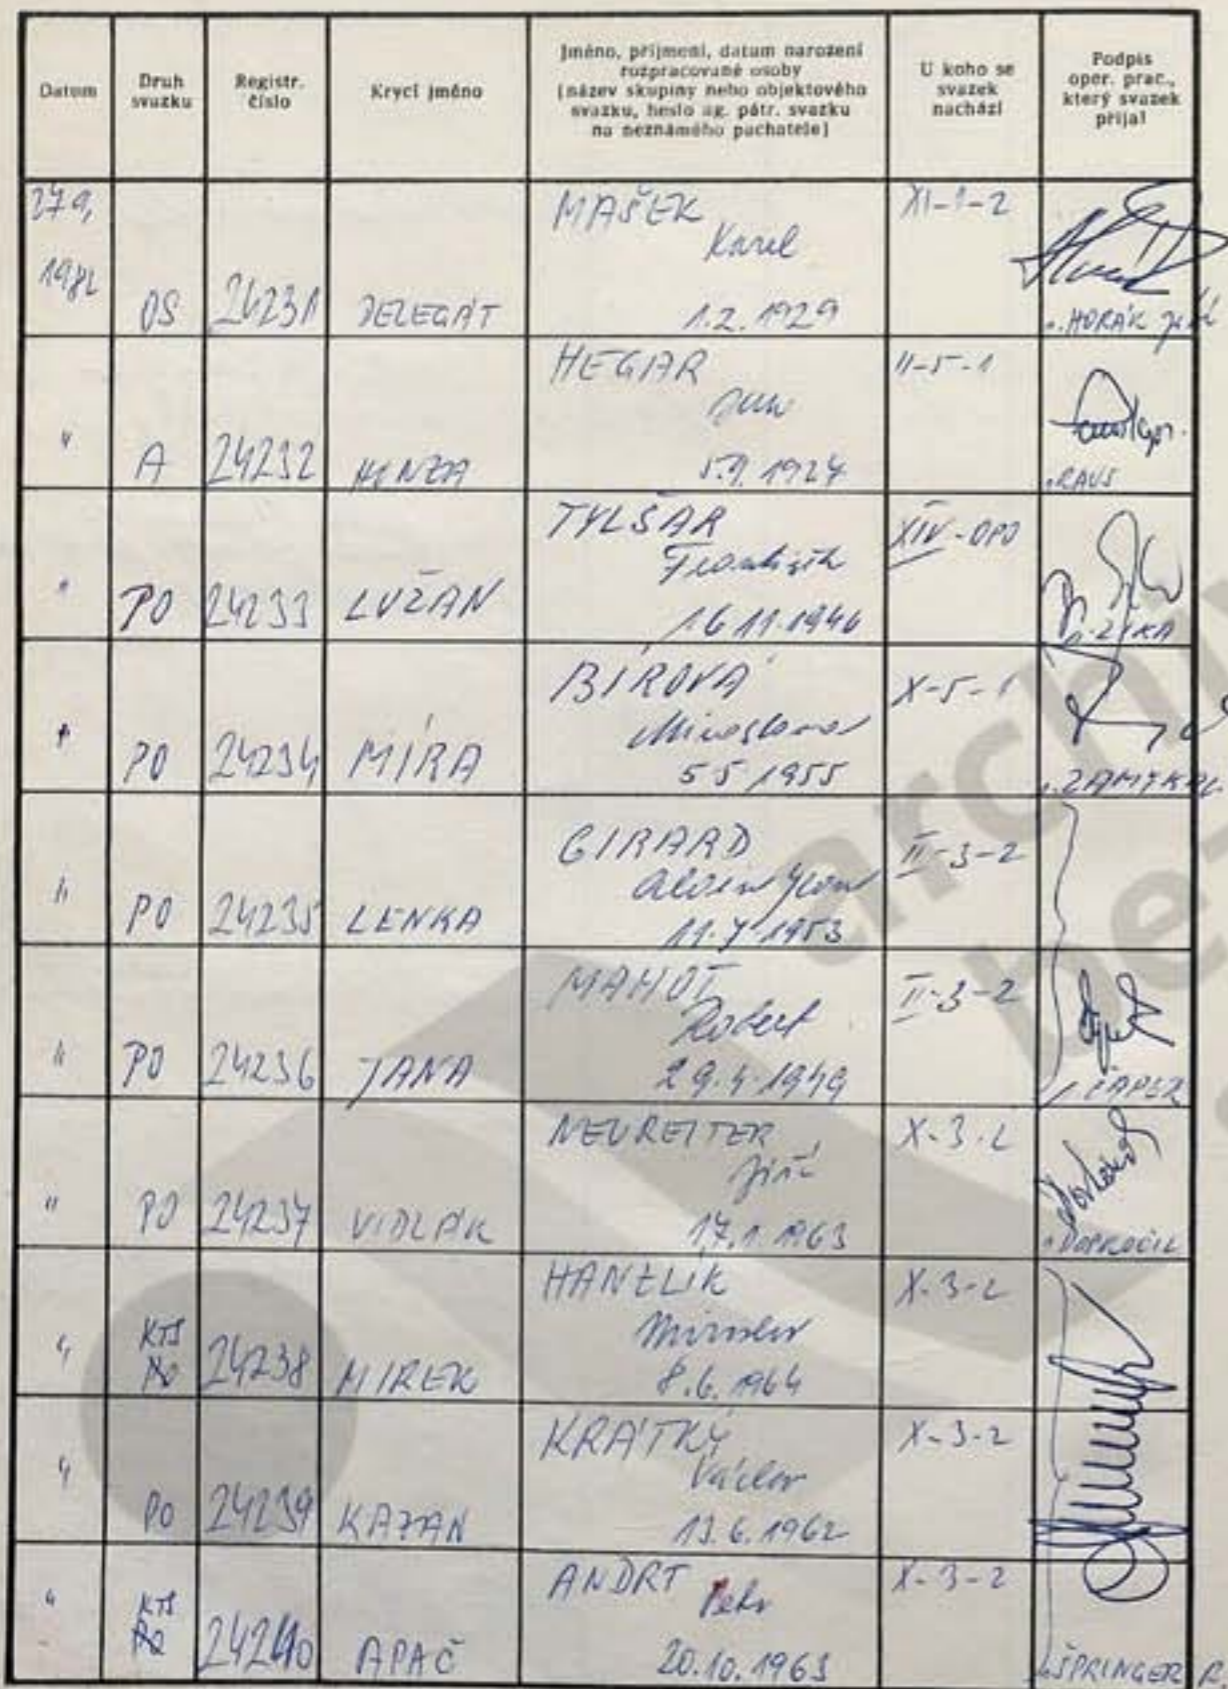 Datum
Druh
svazku
Registr.
číslo
Krycí jméno
Jméno, příjmení, datum narození
rozpracované osoby
(název skupiny nebo objektového
svazku, heslo ag. pátr. svazku
na neznámého pachatele)
U koho se
svazek
nachází
Podpis
oper. prac.,
který svazek
přijal
27.9.
1982
OS 24231 DELEGÁT
MAŠEK
Karel
1.2.1929
XI-1-2
HORÁK
" A 24232
HEGAR
1924
II-5-1
RAUS
" PO 24233 LUŽAN
TYLŠAR
František
16.11.1946
XIV-OPO
ZIKA
" PO 24234 MÍRA
BÍROVÁ
Miroslava
5.5.1955
X-5-1
" PO 24235 LENKA
GIRARD
11.7.1953
II-3-2
" PO 24236 JANA
MAHOT
Robert
29.4.1949
II-3-2
ČAPEK
" PO 24237 VIDLÁK
NEUREITER
Jiří
17.1.1963
X-3-2
" KTS
PO 24238 MIREK
HANZLÍK
Miroslav
8.6.1964
X-3-2
" PO 24239 KAZAN
KRÁTKÝ
Václav
13.6.1962
X-3-2
" KTS
PO 24240 APAČ
ANDRT
Petr
20.10.1963
X-3-2
ŠPRINGER R.